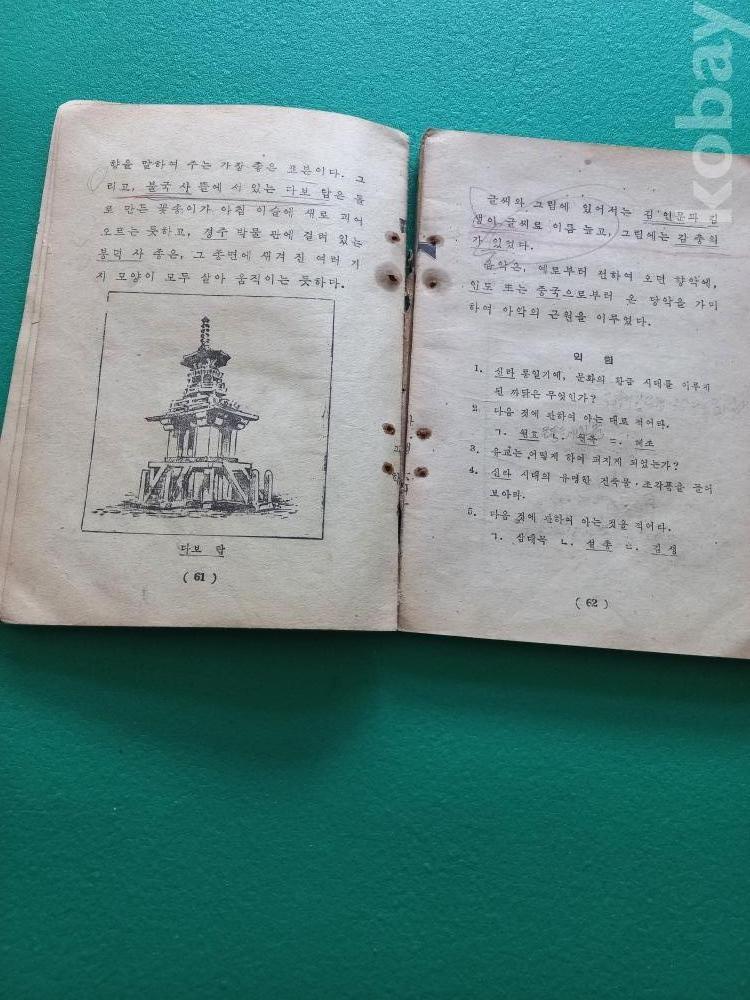 향을 말하여 주는 가장 좋은 표본이다. 그
리고, 불국 사 뜰에 서 있는 다보 탑은 돌
로 만든 꽃송이가 아침 이슬에 새로 피어
오르는 듯하고, 경주 박물 관에 걸려 있는
봉덕 사 종은, 그 종면에 새겨 진 여러 가
지 모양이 모두 살아 움직이는 듯하다.
다보 탑
( 61 )
글씨와 그림에 있어서는 김 인문과 김
생이 글씨로 이름 높고, 그림에는 김 충의
가 있었다.
음악은, 예로부터 전하여 오던 향악에,
인도 또는 중국으로부터 온 당악을 가미
하여 아악의 근원을 이루었다.
익 힘
1. 신라 통일기에, 문화의 황금 시대를 이루게
된 까닭은 무엇인가?
2. 다음 것에 관하여 아는 대로 적어라.
ㄱ. 원효 ㄴ. 원측 ㄷ. 혜초
3. 유교는 어떻게 하여 퍼지게 되었는가?
4. 신라 시대의 유명한 건축물·조각품을 들어
보아라.
5. 다음 것에 관하여 아는 것을 적어라.
ㄱ. 삼대목 ㄴ. 설 총 ㄷ. 김 생
( 62 )
kobay